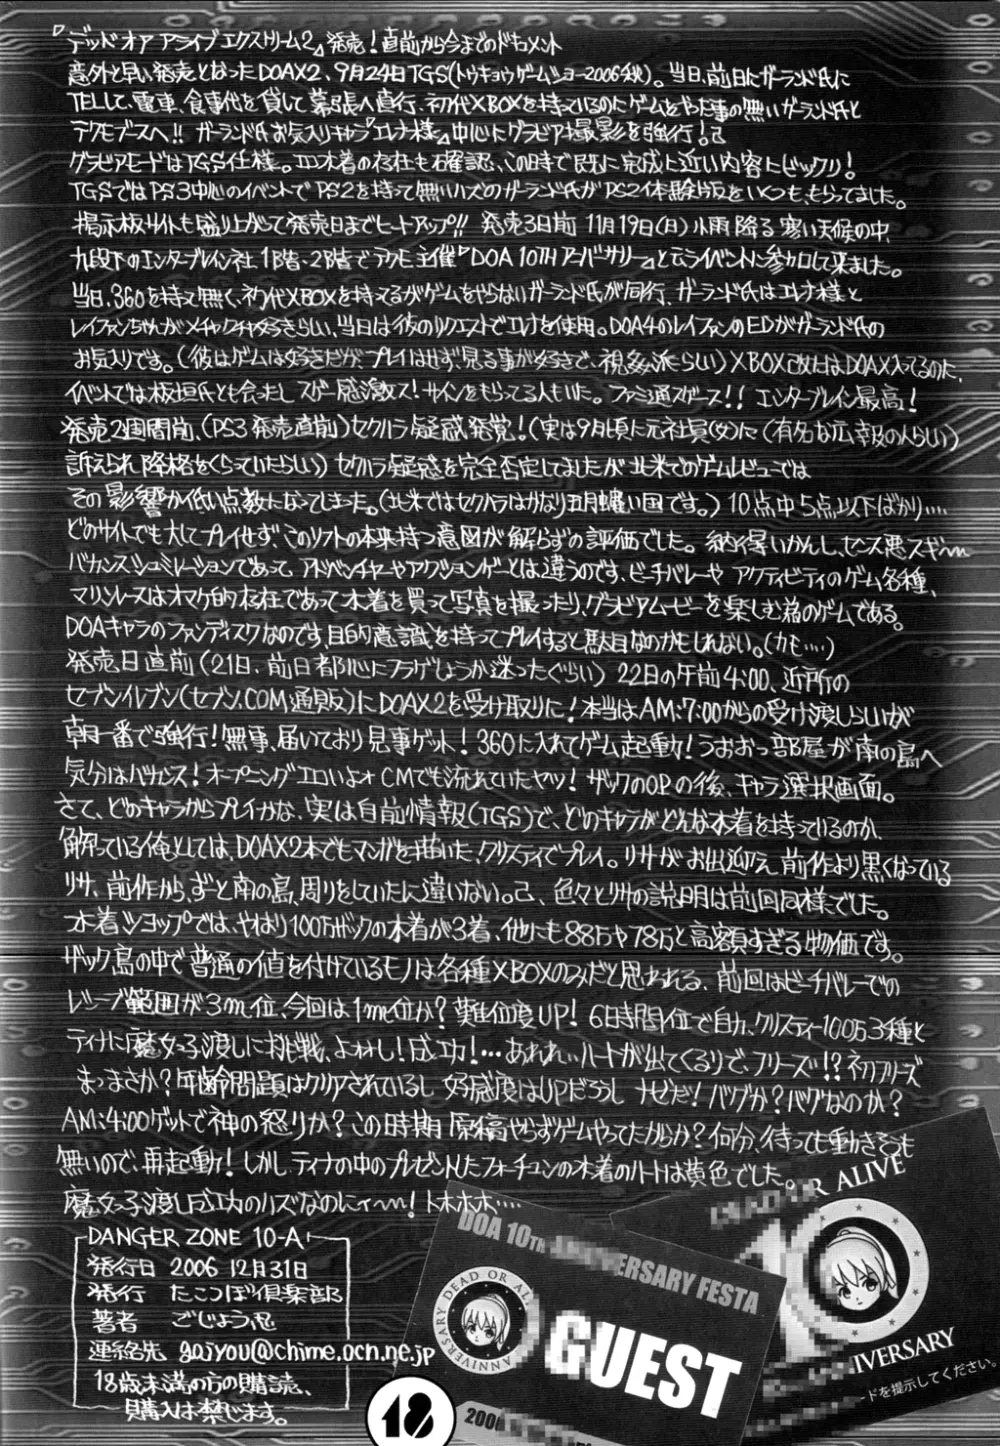 『デッド オア アライブ エクストリーム2』発売!直前から今までのドキュメント
意外と早い発売となったDOAX2、9月24日TGS(トウキョウゲームショー2006秋)。当日、前日にガーランド氏に
TELして、電車、食事代を貸して幕張へ直行、初代XBOXを持っているのにゲームをやった事の無いガーランド氏と
テクモブースへ!! ガーランド氏お気入りキャラ『エレナ様』中心にグラビア撮影を強行!
グラビアモードはTGS仕様。エロ水着の存在も確認、この時で既に完成に近い内容にビックリ!
TGSではPS3中心のイベントでPS2を持って無いハズのガーランド氏がPS2体験版をいくつも、もらってました。
掲示板サイトも盛り上がって発売日までヒートアップ!! 発売3日前 11月19日(日)小雨降る寒い天候の中、
九段下のエンターブレイン社1階・2階でテクモ主催『DOA 10TH アニバーサリー』と云うイベントに参加して来ました。
当日、360を持って無く、初代XBOXを持ってるがゲームをやらないガーランド氏が同行、ガーランド氏はエレナ様と
レイファンちゃんがメチャクチャ好きらしい、当日は彼のリクエストでエレナを使用。DOA4のレイファンのEDがガーランド氏の
お気入りです。(彼はゲームは好きだが、プレイはせず、見る事が好きで、視姦派らしい)XBOX
イベントでは板垣氏とも会ったし スゲー感激ス!サインをもらってる人もいた。ファミ通スゲース!! エンターブレイン最高!
発売2週間前、(PS3発売直前)セクハラ疑惑発覚!(実は9月頃に元社員(女)に(有名な広報の人らしい)
訴えられ降格をくらっていたらしい)セクハラ疑惑を完全否定してましたが 北米でのゲームレビューでは
その影響か低い点数になってしまった。(北米ではセクハラはかなり五月蠅い国です。)10点中5点以下ばかり‥‥
どのサイトでも大してプレイせず、このソフトの本来持つ意図が解らずの評価でした。納得いかんし、センス悪スギ〜
バカンスシュミレーションであって アドベンチャーやアクションゲーとは違うのです、ビーチバレーや アクティビティのゲーム各種、
マリンレースはオマケ的存在であって水着を買って写真を撮ったり、グラビアムービーを楽しむ為のゲームである。
DOAキャラのファンディスクなのです、目的意識を持ってプレイすると駄目なのかもしれない。(カモ‥‥)
発売日直前(21日、前日都心にフラゲしようか迷ったぐらい)22日の午前4:00、近所の
セブンイレブン(セブン.COM通販)にDOAX2を受け取りに!本当はAM:7:00からの受け渡しらしいが
朝一番で強行!無事、届いており見事ゲット!360に入れてゲーム起動!うおおっ部屋が南の島へ
気分はバカンス!オープニングエロいよォ CMでも流れていたヤツ!ザックのOPの後、キャラ選択画面。
さて、どのキャラからプレイかな、実は自前情報(TGS)で、どのキャラがどんな水着を持っているのか、
解っている俺としては、DOAX2本でもマンガを描いた、クリスティでプレイ。リサがお出迎え、前作より黒くなっている
リサ、前作から、ずっと南の島、周りをしていたに違いない。色々とリサの説明は前回同様でした。
水着ショップでは、やはり100万ザックの水着が3着、他にも88万や78万と高額すぎる物価です。
ザック島の中で普通の値を付けているモノは各種XBOXのみだと思われる、前回はビーチバレーでの
レシーブ範囲が3m位、今回は1m位か?難易度UP! 6日時間位で自力、クリスティー100万3種と
ティナに魔女っ子渡しに挑戦、よォォし!成功!‥・あれれぃハートが出てくるりで、フリーズ!?初フリーズ
まっまさか?年齢問題はクリアされているし 好感度はUPだろうし ナゼだ!バグか?バグなのか?
AM:4:00ゲットで神の怒りか?この時期 原稿やらずゲームやってたからか?何分、待っても動きそうも
無いので、再起動!しかし、ティナの中のプレゼントしたフォーチュンの水着のハートは黄色でした。
魔女っ子渡し成功のハズなのにィ〜〜!トホホホ‥‥
DANGER ZONE 10-A
発行日 2006 12月31日
発行 たこつぼ倶楽部
著者 ごじょう忍
連絡先 gojyou@chime.ocn.ne.jp
18歳未満の方の購読、
購入は禁じます。
18
DOA 10TH ANNIVERSARY FESTA
ANNIVERSARY DEAD OR AL
GUEST
200
DEAD OR ALIVE
NIVERSARY
ードを提示してください。